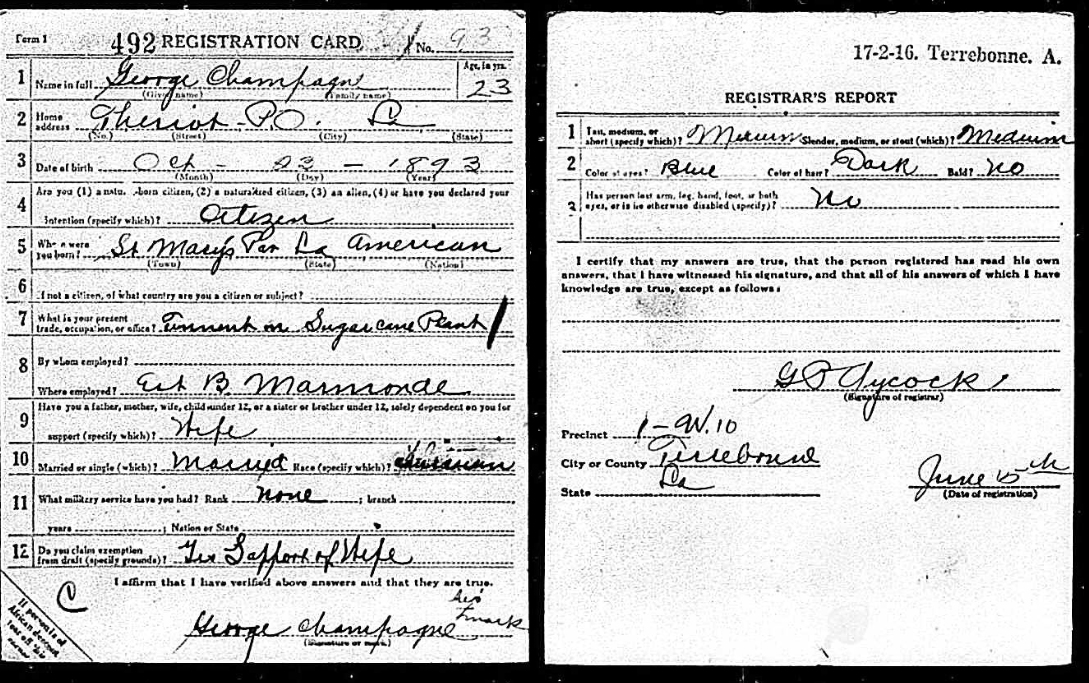 Form 1
492 REGISTRATION CARD No. 93
1 Name in full George Champagne Age, in yrs. 23
(Given name) (Family name)
2 Home address Theriot P.O. La
(No.) (Street) (City) (State)
3 Date of birth Oct - 23 - 1893
(Month) (Day) (Year)
4 Are you (1) a natural-born citizen, (2) a naturalized citizen, (3) an alien, (4) or have you declared your
intention (specify which)? Citizen
5 Where were you born? St Mary's Par La American
(Town) (State) (Nation)
6 If not a citizen, of what country are you a citizen or subject?
7 What is your present trade, occupation, or office? Tennent on Sugar cane Plant
8 By whom employed?
Where employed? Est B. Marmonde
9 Have you a father, mother, wife, child under 12, or a sister or brother under 12, solely dependent on you for
support (specify which)? Wife
10 Married or single (which)? Married Race (specify which)?
11 What military service have you had? Rank None ; branch
years ; Nation or State
12 Do you claim exemption from draft (specify grounds)? Yes Support of Wife
I affirm that I have verified above answers and that they are true.
C
his
mark
George Champagne
(Signature or mark)
If person is of African descent, tear off this corner
17-2-16. Terrebonne. A.
REGISTRAR'S REPORT
1 Tall, medium, or short (specify which)? Medium Slender, medium, or stout (which)? Medium
2 Color of eyes? Blue Color of hair? Dark Bald? No
3 Has person lost arm, leg, hand, foot, or both eyes, or is he otherwise disabled (specify)? No
I certify that my answers are true, that the person registered has read his own
answers, that I have witnessed his signature, and that all of his answers of which I have
knowledge are true, except as follows:
G P Aycock
(Signature of registrar)
Precinct 1 - W. 10
City or County Terrebonne
State La
June 5th
(Date of registration)